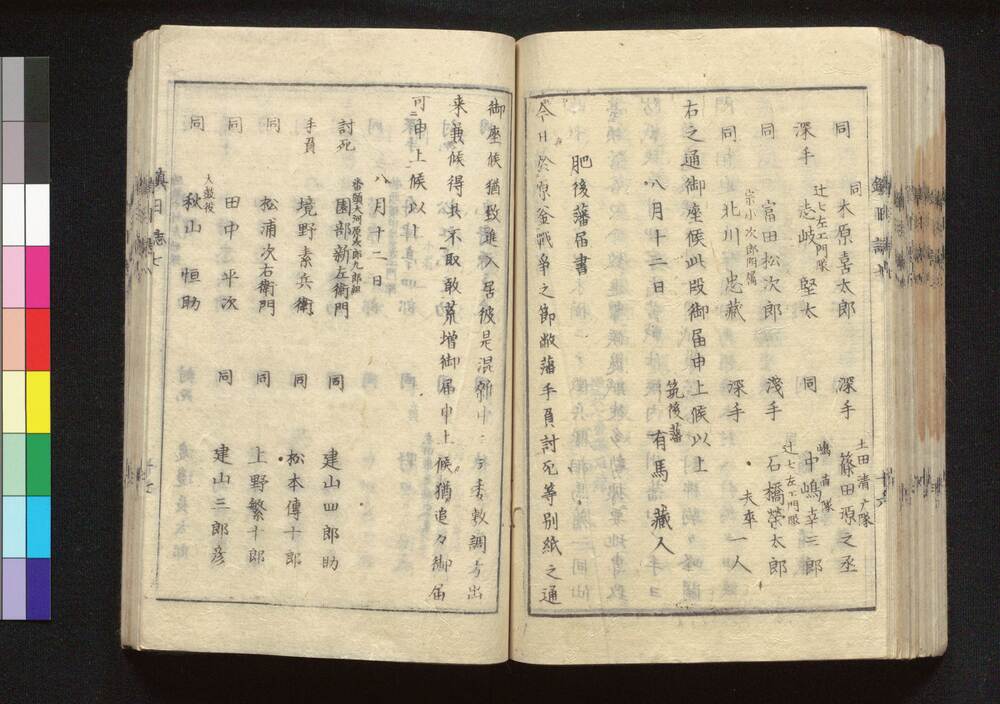 同
同 木原喜太郎 深手
土田清戸隊 篠田源之丞
深手
辻七左エ門隊 志岐堅太 同
嶋 隊 中嶋幸三郎
同 富田松次郎 淺手
辻七左エ門隊 石橋榮太郎
宗小次郎附属
同 北川忠蔵 深手 夫卒一人
右之通御座候此段御届申上候以上
筑後藩
八月十二日 有馬蔵人
肥後藩届書
今日於原釜戰争之節敝藩手負討死等別紙之通
御座候猶致進入居彼是混雜中ニテ委敷調方出
来兼候得共不取敢荒増御届申上候猶追々御届
可申上候以上
八月十二日
番頭大河原次郎九郎組
討死 園部新左衛門 同 建山四郎助
手負 境野素兵衛 同 松本傳十郎
同 松浦次右衛門 同 上野繁十郎
同 田中平次 同 建山三郎彦
同 秋山恒助